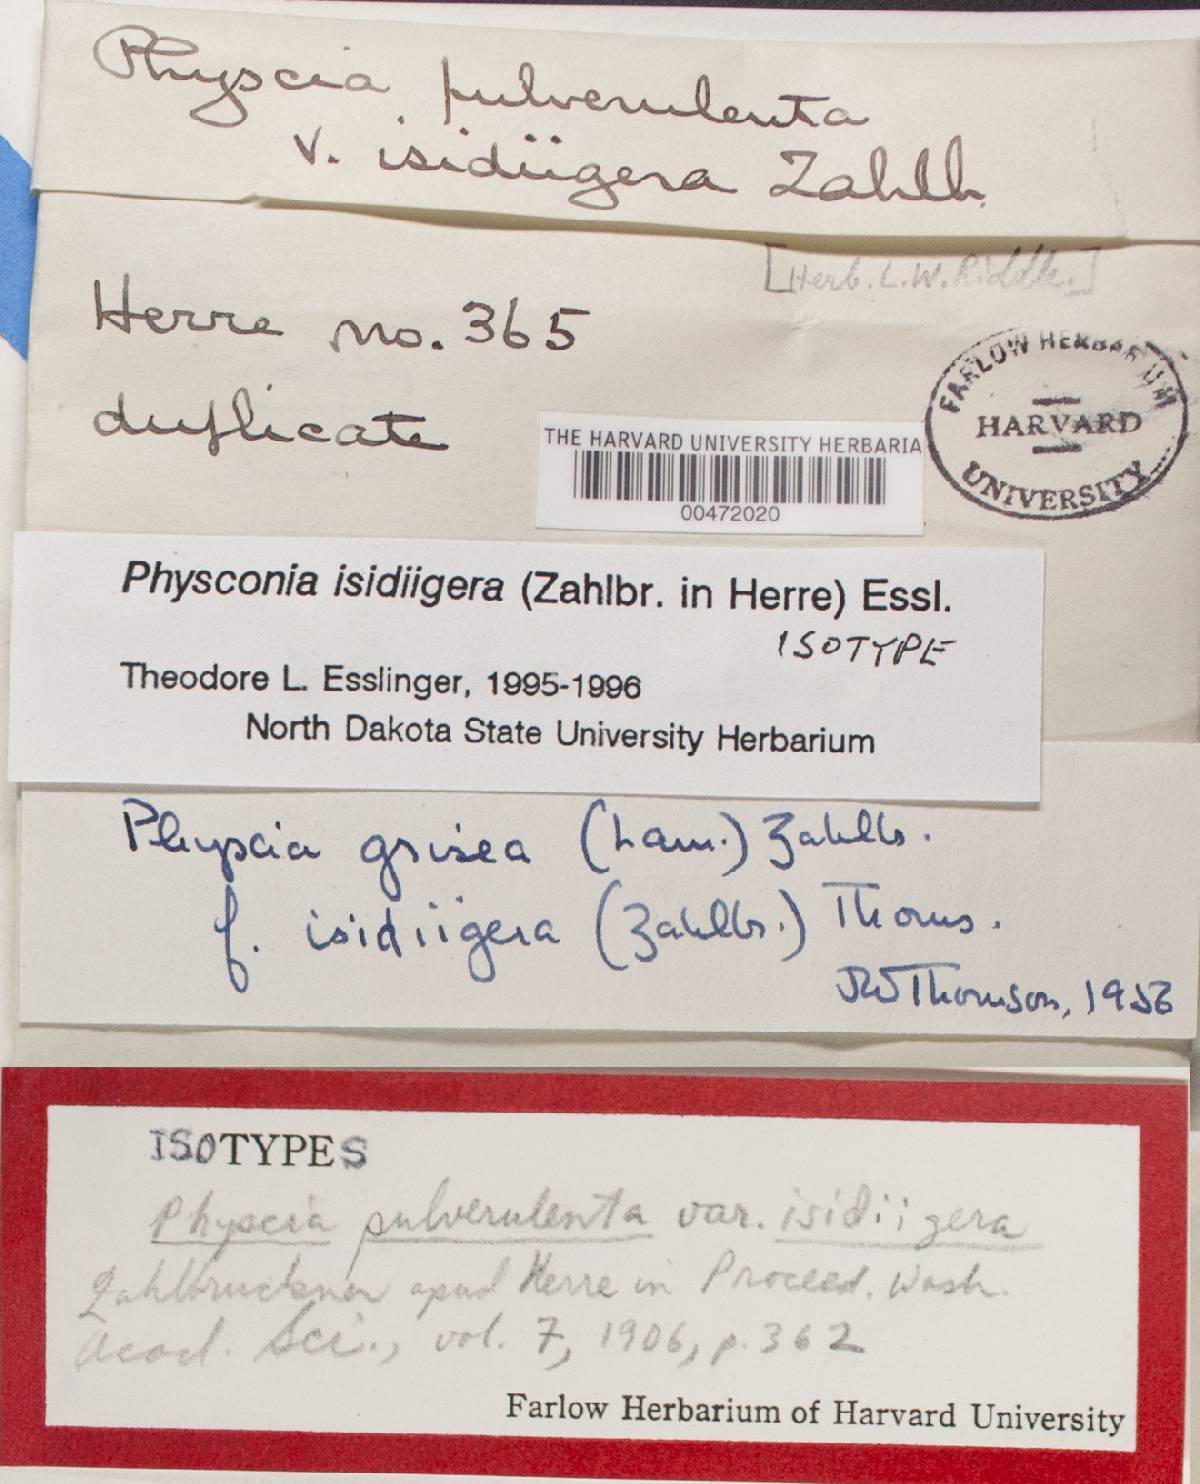 Physcia pulverulenta
v. isidiigera Zahlb.
[Herb. L. W. Riddle.]
Herre no. 365
duplicate
FARLOW HERBARIUM
HARVARD
UNIVERSITY
THE HARVARD UNIVERSITY HERBARIA
00472020
Physconia isidiigera (Zahlbr. in Herre) Essl.
ISOTYPE
Theodore L. Esslinger, 1995-1996
North Dakota State University Herbarium
Physcia grisea (Lam.) Zahlbr.
f. isidiigera (Zahlbr.) Thoms.
JWThomson, 1956
ISOTYPES
Physcia pulverulenta var. isidiigera
Zahlbruckner apud Herre in Proceed. Wash.
Acad. Sci., vol. 7, 1906, p. 362
Farlow Herbarium of Harvard University